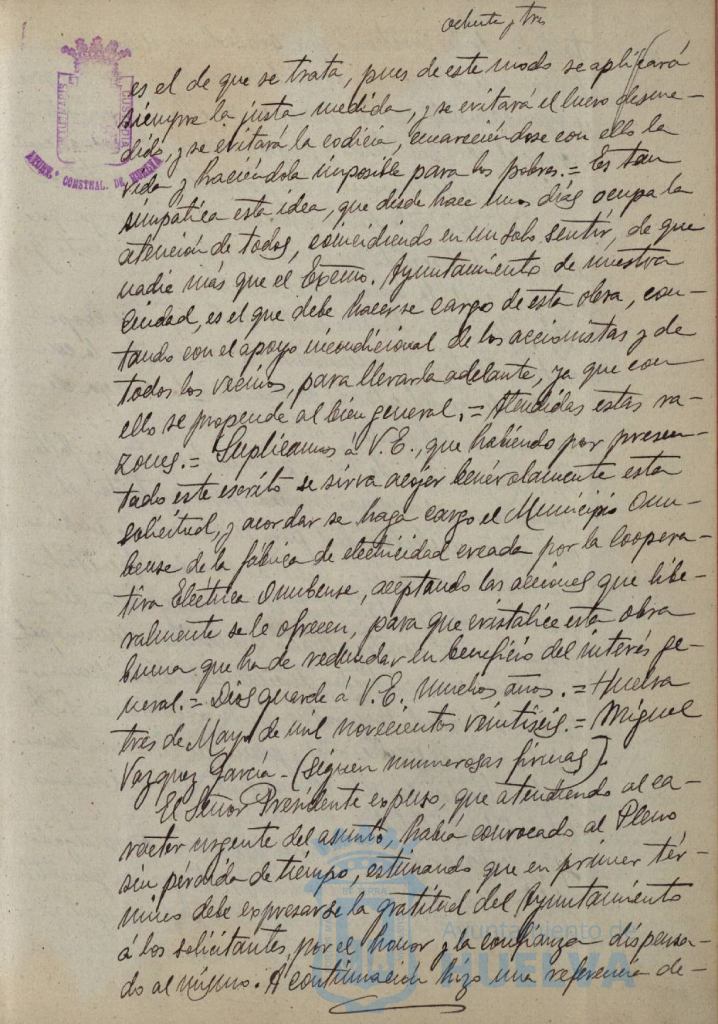 ochenta y tres
es el de que se trata, pues de este modo se aplicará
siempre la justa medida, y se evitará el lucro desme-
dido, y se evitará la codicia, encareciéndose con ello la
vida y haciéndola imposible para los pobres.= Es tan
simpática esta idea, que desde hace unos días ocupa la
atención de todos, coincidiendo en un solo sentir, de que
nadie más que el Excmo. Ayuntamiento de nuestra
Ciudad, es el que debe hacerse cargo de esta obra, con-
tando con el apoyo incondicional de los accionistas y de
todos los vecinos, para llevarla adelante, ya que con
ello se propende al bien general.= Atendidas estas ra-
zones.= Suplicamos á V.E., que habiendo por presen-
tado este escrito se sirva acojer benévolamente esta
solicitud, y acordar se haga cargo el Municipio Onu-
bense de la fábrica de electricidad creada por la Coopera-
tiva Eléctrica Onubense, aceptando las acciones que libe-
ralmente se le ofrecen, para que cristalice esta obra
buena que ha de redundar en beneficio del interés ge-
neral.= Dios guarde á V.E. muchos años.= Huelva
tres de Mayo de mil novecientos veintiseis.= Miguel
Vazquez García - (Siguen numerosas firmas).
El Señor Presidente expuso, que atendiendo al ca-
racter urgente del asunto, había convocado al Pleno
sin pérdida de tiempo, estimando que en primer tér-
mino debe expresarse la gratitud del Ayuntamiento
á los solicitantes, por el honor y la confianza dispensa-
do al mismo. A continuación hizo una referencia de-
AYUNT.º CONSTNAL. DE HUELVA
Ayuntamiento de
HUELVA